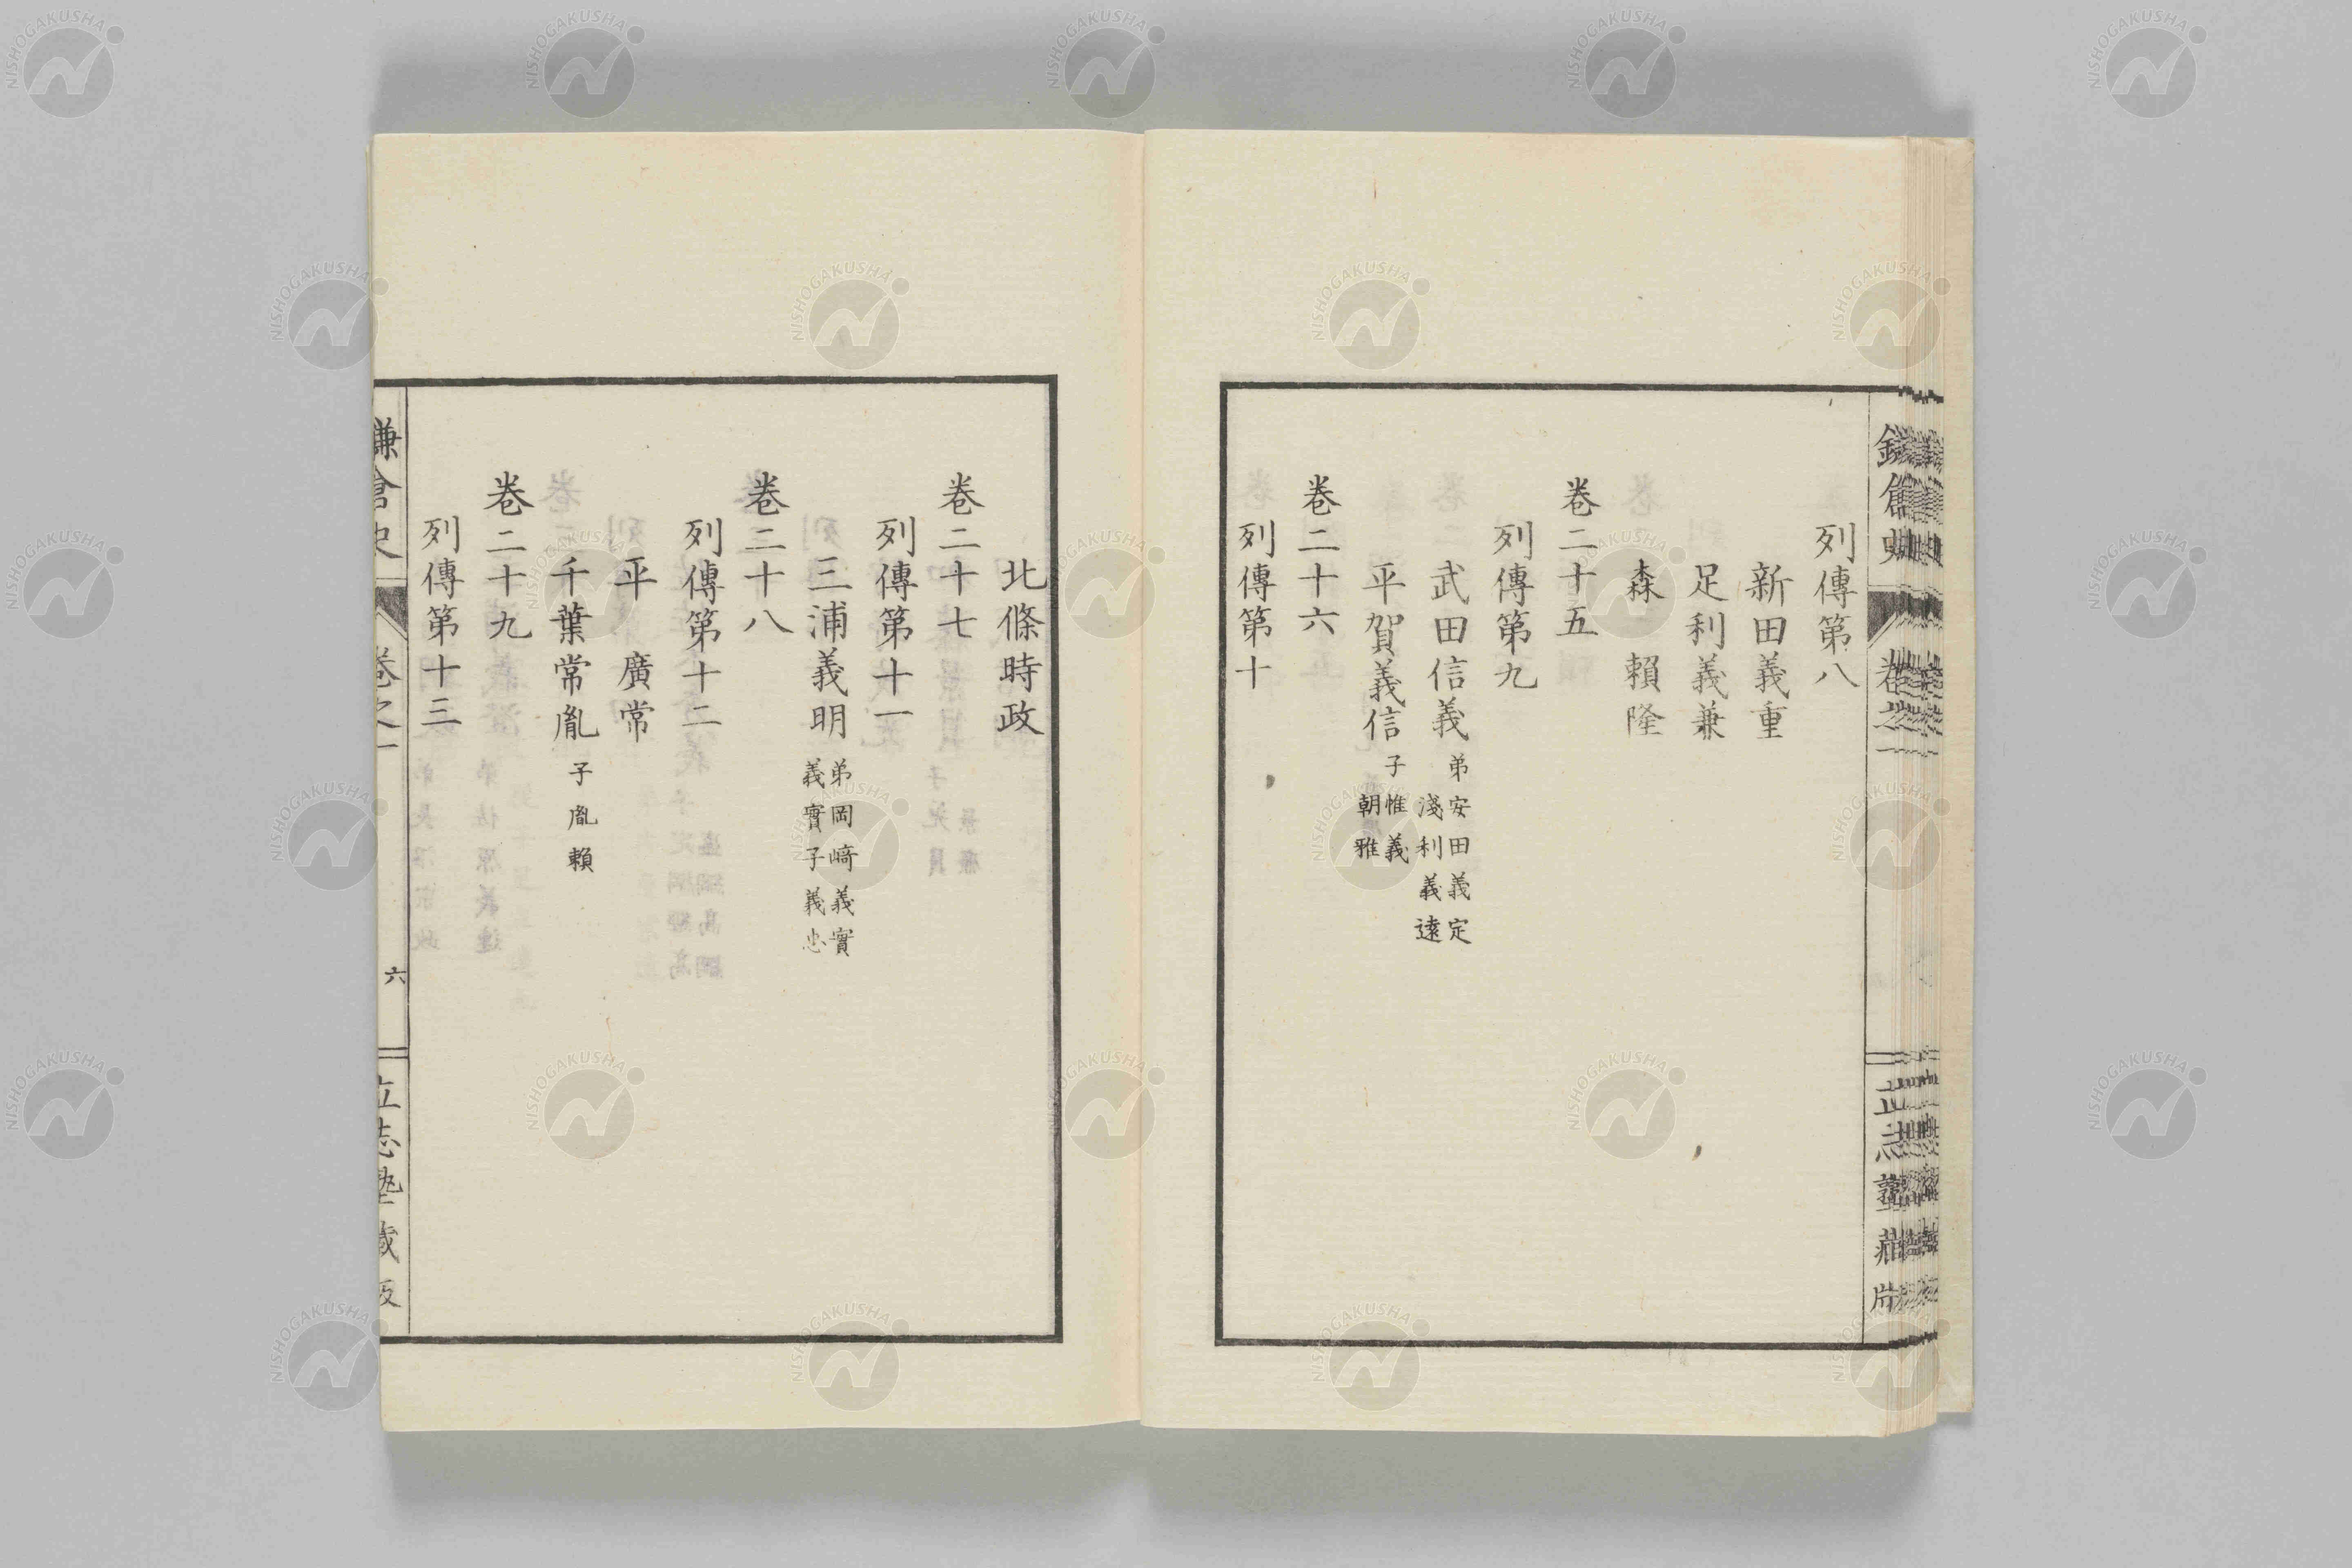 列傳第八
新田義重
足利義兼
森 賴隆
卷二十五
列傳第九
武田信義 弟安田義定 淺利義遠
平賀義信 子惟義 朝雅
卷二十六
列傳第十
北條時政
卷二十七
列傳第十一
三浦義明 弟岡﨑義實 義實子義忠
卷二十八
列傳第十二
平 廣常
千葉常胤 子胤賴
卷二十九
列傳第十三
鎌倉史 卷之一 六 立志塾藏版
NISHOGAKUSHA